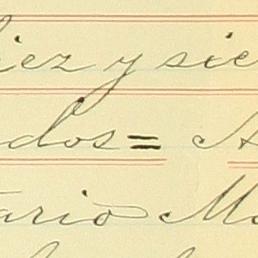 diez y sie
dos= A
tario Ma